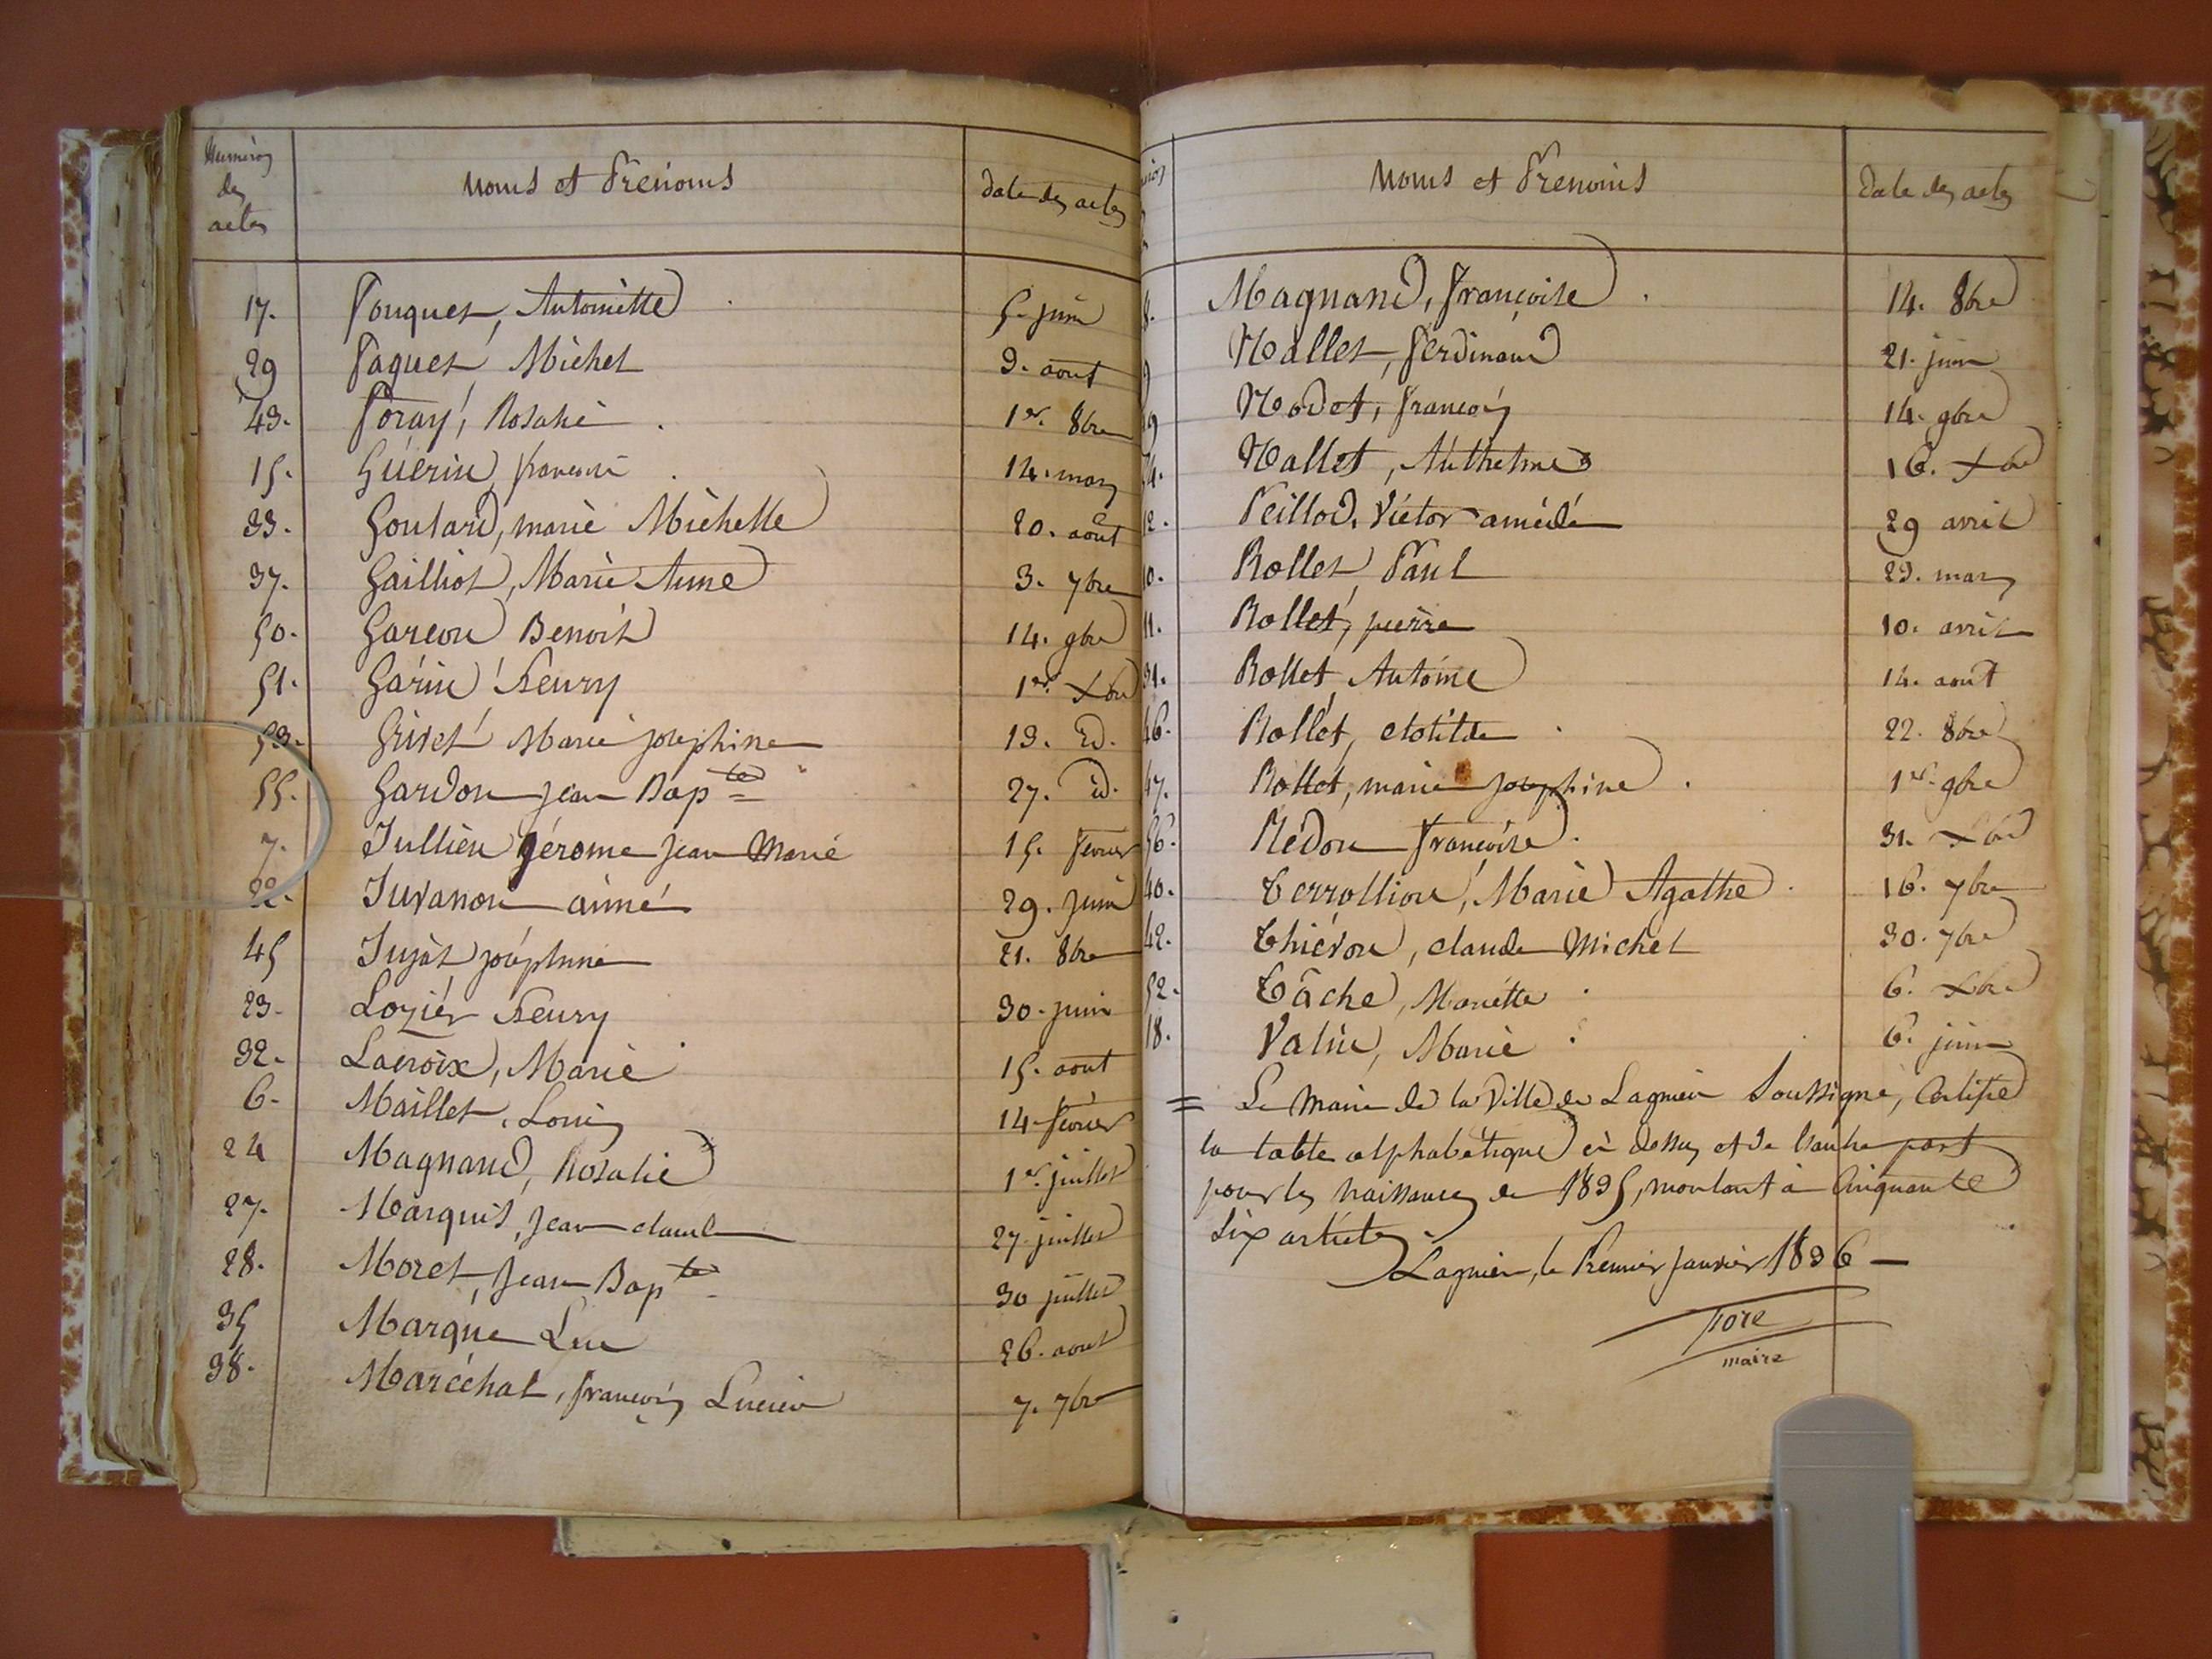 Numéros des actes
Noms et Prénoms
Date des actes
17. Fouquet, Antoinette 5. juin
29 Faquet Michel 9. aout
43. Foray, Rosalie 1er. 8bre
15. Guérin, 14. mars
33. Goulard, marie Michelle 20. août
37. Gailliot, Marie Anne 3. 7bre
50. Garcon Benoit 14. 9bre
51. Garin fleury 1er. Xbre
53. Grivet Marie josephine 13. id.
55. Gardon jean Bapte 27. id.
7. Jullien Jérome jean Marie 15. fevrier
22. Juvanon aimé 29. juin
45 Jujat joséphine 21. 8bre
23. Lozier fleury 30. juin
32. Lacroix, Marie 15. aout
6. Maillet, Louis 14 fevrier
24 Magnand, Rosalie 1er. juillet
27. Marquis, jean claude 27 juillet
28. Moret, jean Bapte 30 juillet
35 Marque Luc 26. aout
38. Maréchal, françois Lucien 7. 7bre
Noms et Prenoms
Date des actes
8. Magnand, françoise 14. 8bre
9 Nallet, ferdinand 21. juin
49 Nodet, françois 14. 9bre
54. Nallet, Anthelme 16. Xbre
12. Peillod, Victor amédé 29 avril
10. Rollet Paul 29. mars
11. Rollet, pierre 10. avril
31. Rollet Antoine 14. aout
46. Rollet, clotilde 22. 8bre
47. Rollet, marie josephine 1er. 9bre
56. Rédon françoise 31. Xbre
40. Terrollion, Marie Agathe 16. 7bre
42. Thiévon, claude Michel 30. 7bre
52. Tâche, Mariette 6. Xbre
18. Valin, Marie 6. juin
= Le Maire de la Ville de Lagnieu Soussigné, Certifie
la table alphabétique ci dessus et de l'autre part
pour les naissances de 1835, montant à Cinquante
Six articles
Lagnieu, le Premier janvier 1836 —
maire